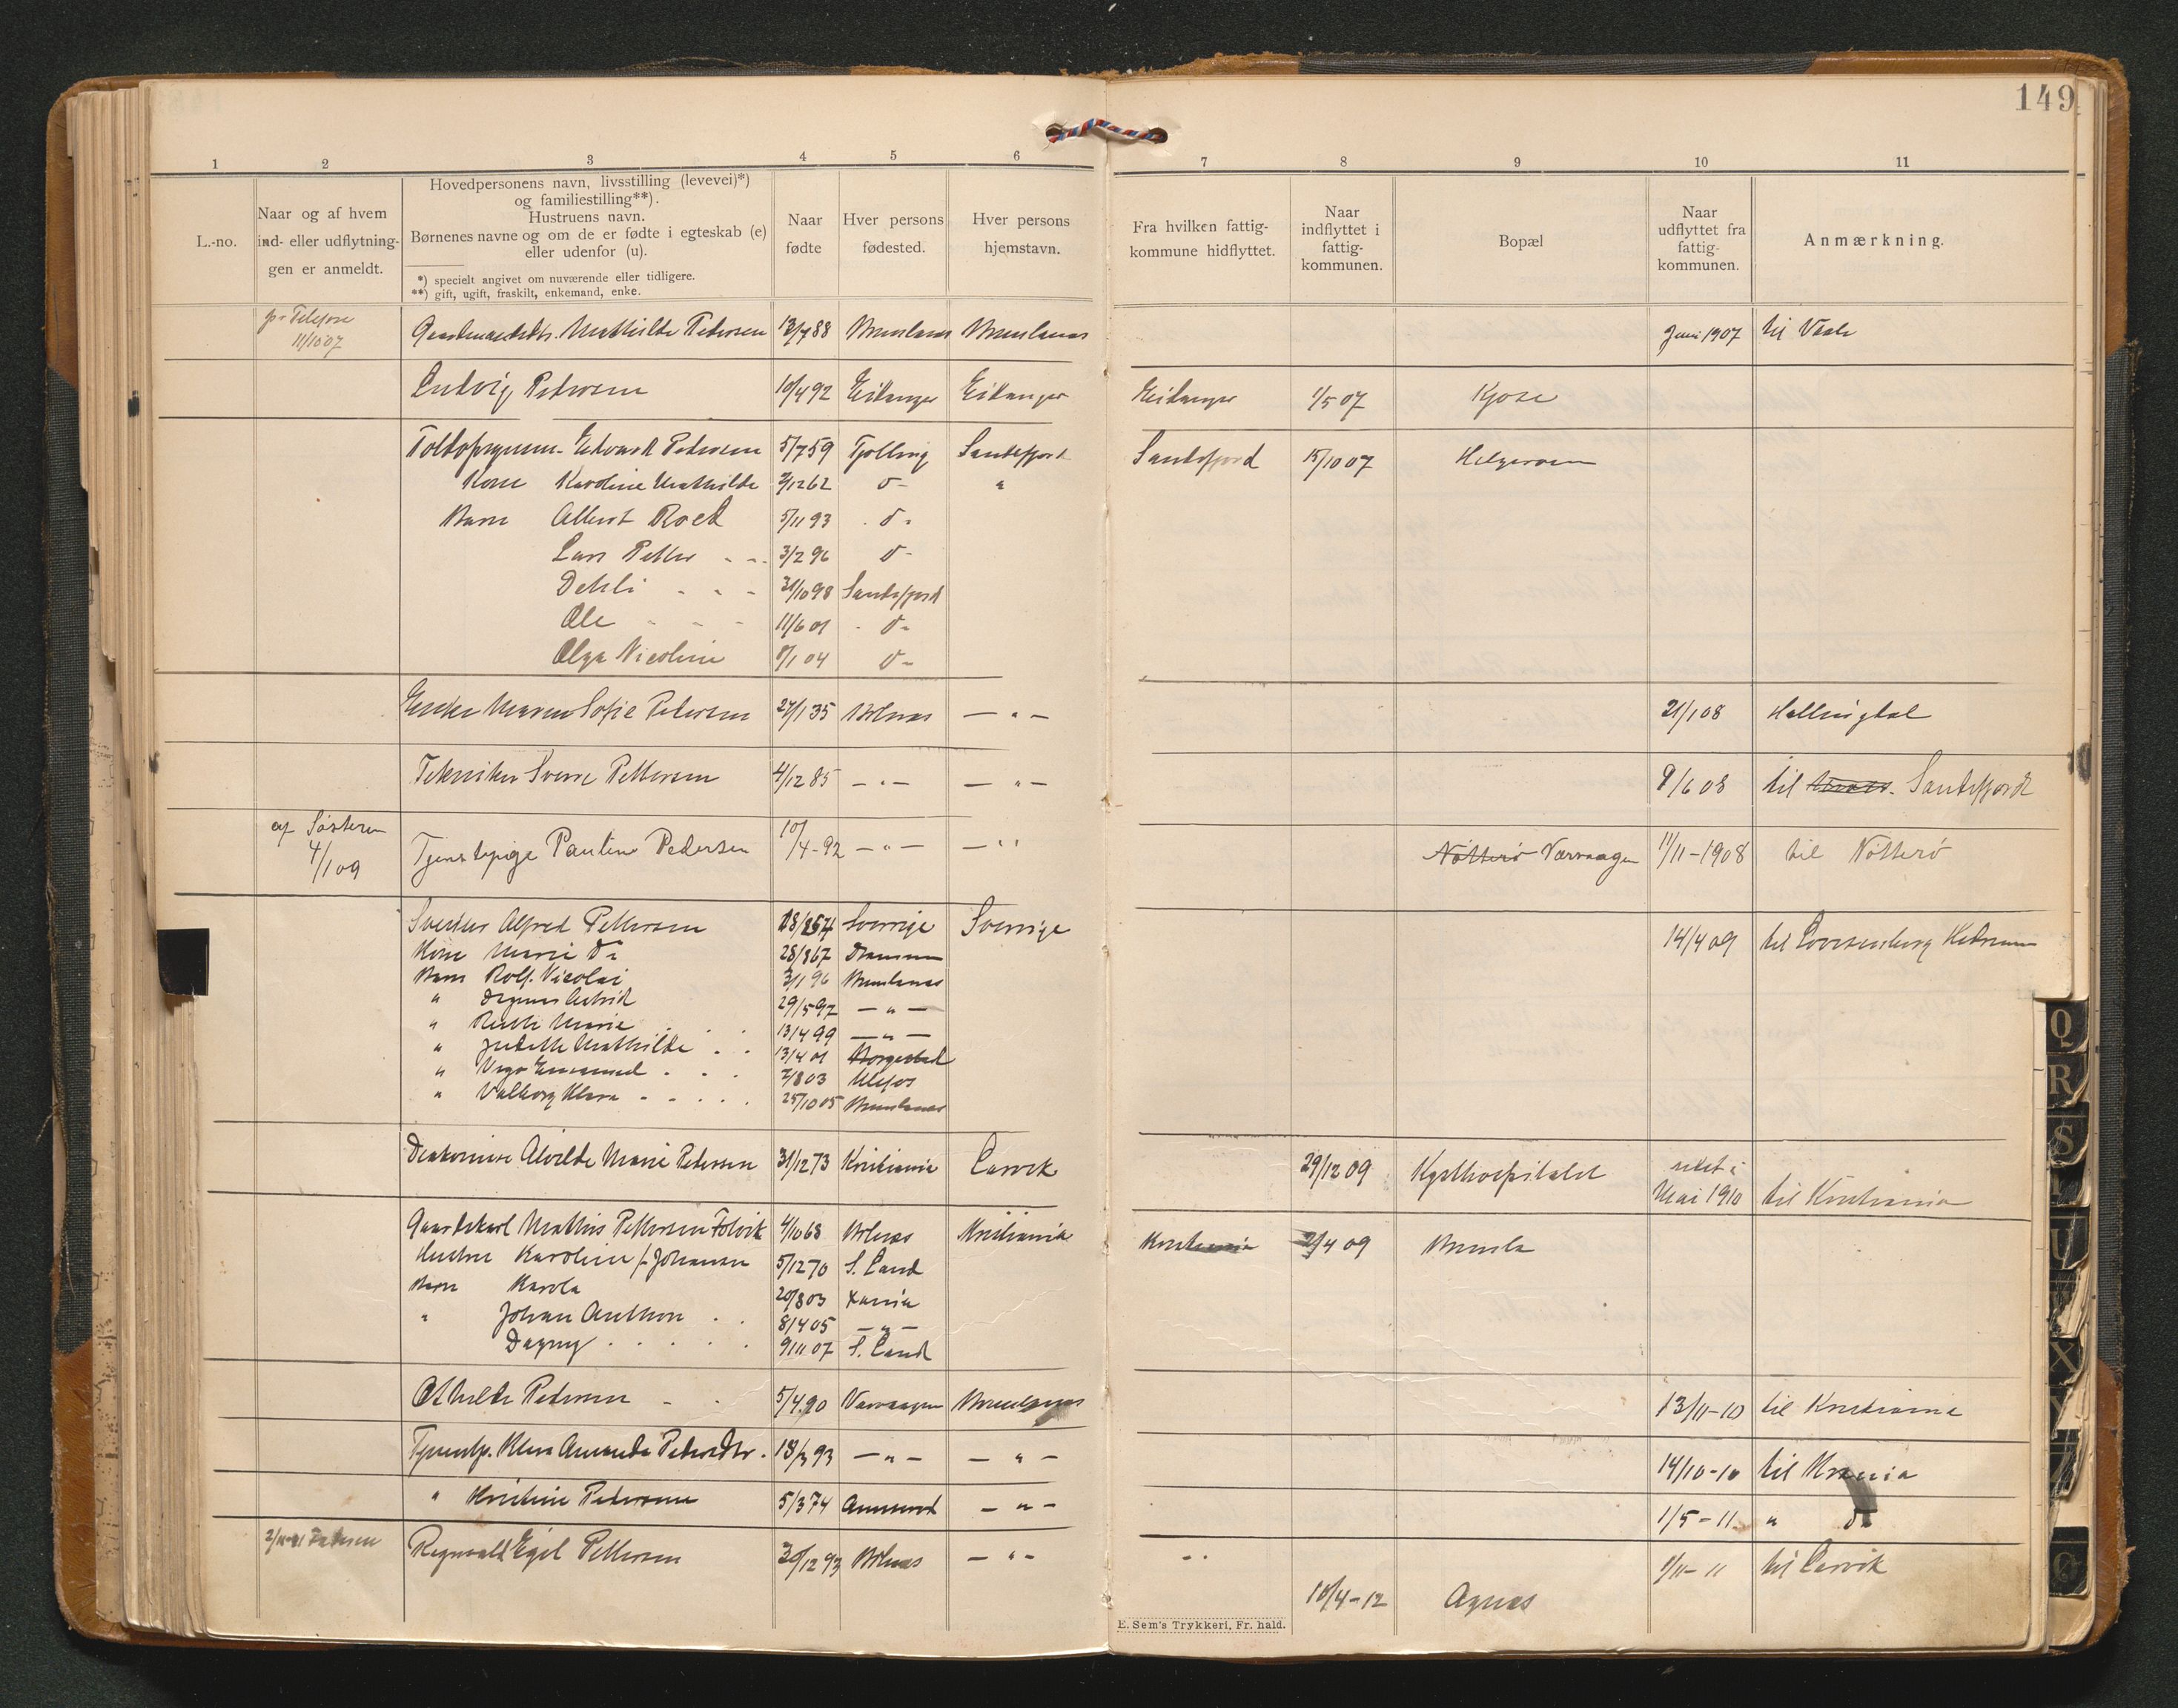 149
1 2 3 4 5 6 7 8 9 10 11
L.-no.
Naar og af hvem
ind- eller udflytnin-
gen er anmeldt.
Hovedpersonens navn, livsstilling (levevei)*)
og familiestilling**).
Hustruens navn.
Børnenes navne og om de er fødte i egteskab (e)
eller udenfor (u).
*) specielt angivet om nuværende eller tidligere.
**) gift, ugift, fraskilt, enkemand, enke.
Naar
fødte
Hver persons
fødested.
Hver persons
hjemstavn.
Fra hvilken fattig-
kommune hidflyttet.
Naar
indflyttet i
fattig-
kommunen.
Bopæl
Naar
udflyttet fra
fattig-
kommunen.
Anmærkning.
11/10 07 Mathilde Pedersen 13/7 88 Brunlanes Brunlanes Juni 1907 til Vaale
Ludvig Pedersen 10/4 92 Eidanger Eidanger Eidanger 1/5 07 Kjose
Edvard Pedersen 5/7 59 Tjølling Sandefjord Sandefjord 15/10 07 Helgeroen
Kone Karoline Mathilde 2/12 62 d- "
Barn Albert Roed 5/11 93 d-
Lars Petter - - 3/2 96 d-
Dehli - - - 31/10 98 Sandefjord
Ole - - - 11/6 01 - d-
Olga Nicoline 8/1 04 d-
Enke Maren Sofie Pedersen 27/1 35 — " — 21/1 08 Hallingdal
Tekniker Sverre Pettersen 4/12 85 — " — — " — 9/6 08 til Sandefjord
af Søsteren
4/1 09
Tjenestepige Pauline Pedersen 10/4-92 — " — — " Nøtterø Nævraagen 11/11-1908 til Nøtterø
Alfred Pettersen Sverrige Sverrige 14/4 09 til Hedrum
Kone Marie d- 28/8 67 Drammen
Barn Rolf Nicolai 3/1 96 Brunlanes
" Dagmar Astrid 29/5 97 — " —
" Ruth Marie 13/4 99 — " —
" Mathilde - - 13/4 01 Borgestad
" 2/8 03 Ulefos
" Valborg Klara - - - 25/10 05 Brunlanes
Diakonisse Alvilde Marie Pedersen 31/12 73 Kristiania Larvik 29/12 09 Kysthospitalet
Mai 1910 til Kristiania
Gaardskarl Mathis Pettersen 4/10 68 Kristiania Kristiania 2/4 09 Brunla
Hustru Karoline f. Johansen 5/12 70 S. Land
Barn Karola 20/8 03 Xania
" Johan Anthon - - 8/4 05 — " —
Dagny - - - - 9/11 07 S. Land
Pedersen - - 5/4 90 Brunlanes 13/11-10 til Kristiania
Klara Amanda Pedersdtr. 18/3 93 — " — — " — 14/10-10 til Krania
" Kristine Pedersen 5/3 74 — " — 1/5-11 " do
Ragnvald Egil Pettersen 30/12 93 — " — 1/11-11 til Larvik
10/4-12 Agnes
E. Sem's Trykkeri, Fr. hald.
Q
R
S
U
X
Y